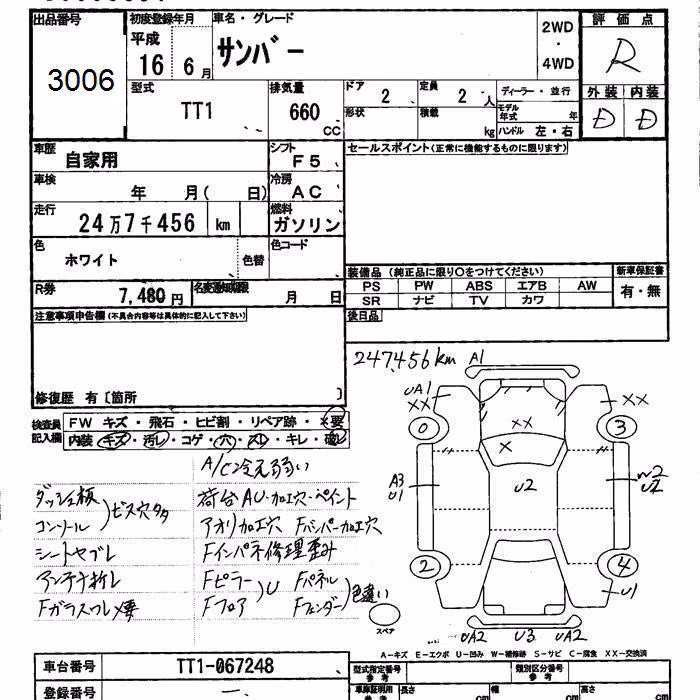 出品番号
3006
初度登録年月
平成
16 6月
車名・グレード
サンバー
2WD
・
4WD
評価点
R
型式
TT1
排気量
660
CC
ドア
2
定員
2 人
形状
積載
kg
ディーラー・並行
モデル年式 年
ハンドル 左・右
外装 内装
D D
車歴
自家用
シフト
F5
車検
年 月( 日)
冷房
AC
走行
24万7千456 km
燃料
ガソリン
色
ホワイト
色替
色コード
R券
7,480円
名変通知期限
月 日
セールスポイント(正常に機能するものに限ります)
装備品 (純正品に限り○をつけてください)
PS PW ABS エアB AW
SR ナビ TV カワ
新車保証書
有・無
後日品
注意事項申告欄(不具合内容等は具体的に記入して下さい)
修復歴 有〔箇所 〕
検査員記入欄
FW キズ・飛石・ヒビ割・リペア跡・×要
内装 キズ・汚レ・コゲ・穴・スレ・キレ・破レ
A/C冷え弱い
ダッシュ板
コンソール
ビス穴多
シートヤブレ
アンテナ折レ
Fガラスワレ×要
荷台AU・加工穴・ペイント
アオリ加工穴 Fバンパー加工穴
Fインパネ修理歪み
Fピラー
Fフロア
U
Fパネル
Fフェンダー
色違い
247,456km
A1
UA1
XX
XX
0
3
XX
X
A3
U1
U2
W2
U2
2
4
U1
UA2 U3 UA2
スペア
A-キズ E-エクボ U-凹み W-補修跡 S-サビ C-腐食 XX-交換済
車台番号
TT1-067248
登録番号
型式指定番号
参考
類別区分番号
参考
車庫証明用
参考
長さ
cm
幅
cm
高さ
cm